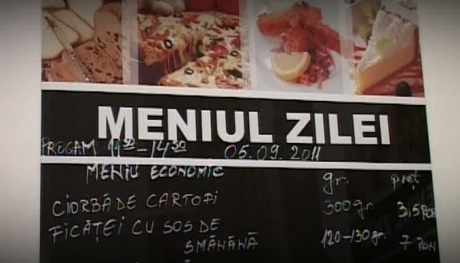 MENIUL ZILEI
PROGAM 11³⁰-14³⁰ 05.09.2011
MENIU ECONOMIC gr. preț
CIORBĂ DE CARTOFI 300gr. 3,5 RON
FICĂȚEI CU SOS DE
SMÂNÂNĂ 120-130gr. 7 RON